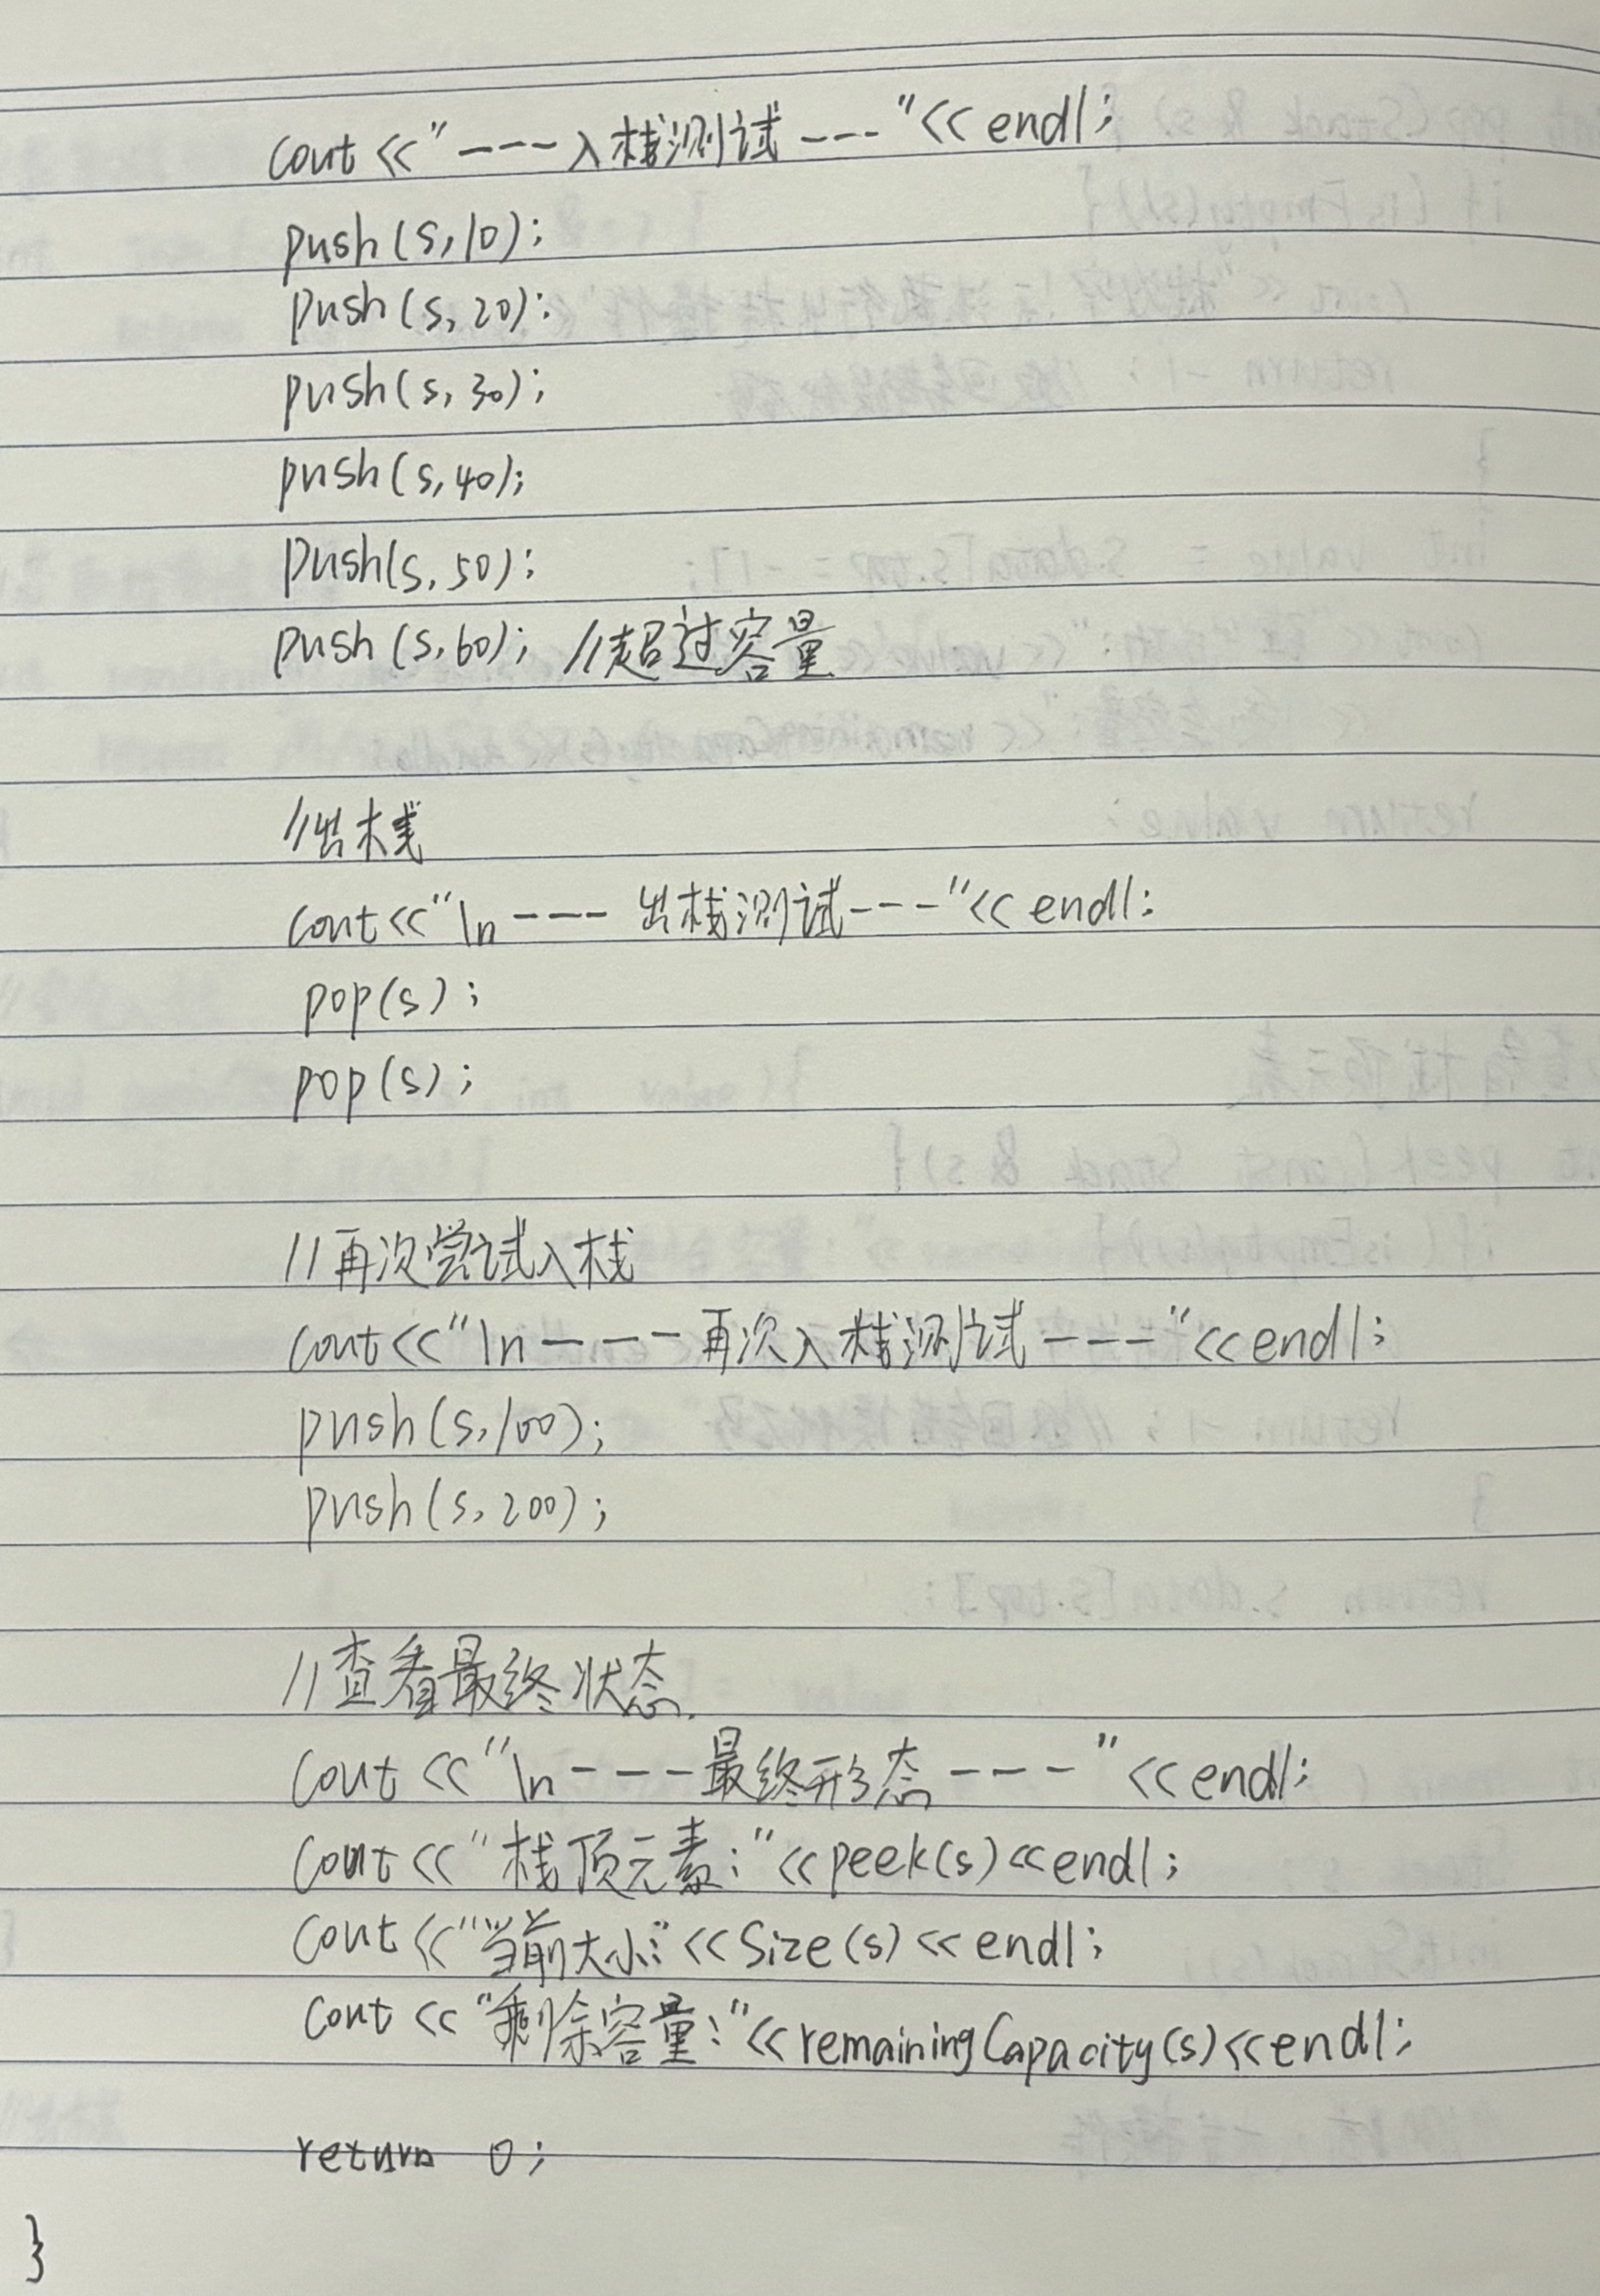 cout <<"---入栈测试---"<< endl;
push(s,10);
push(s,20);
push(s,30);
push(s,40);
push(s,50);
push(s,60); //超过容量
//出栈
cout<<"\n---出栈测试---"<< endl;
pop(s);
pop(s);
//再次尝试入栈
cout<<"\n---再次入栈测试---"<<endl;
push(s,100);
push(s,200);
//查看最终状态.
cout <<"\n---最终形态---"<<endl;
cout <<"栈顶元素:"<<peek(s)<<endl;
cout <<"当前大小:"<<Size(s)<<endl;
cout <<"剩除容量:"<<remainingCapacity(s)<<endl;
return 0;
}